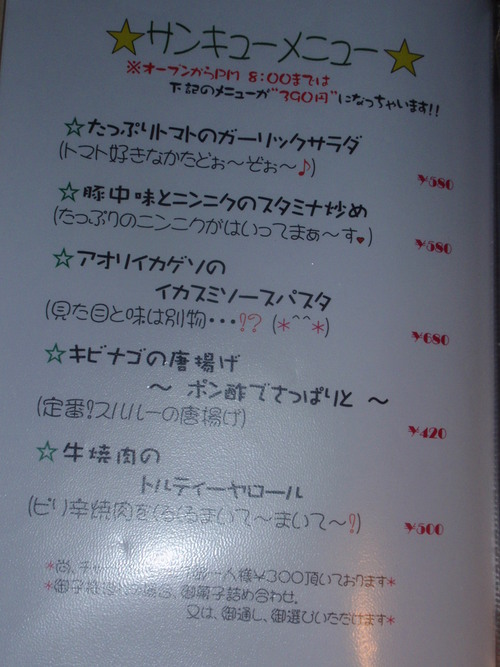 ★サンキューメニュー★
※オープンからPM 8:00までは
下記のメニューが"390円"になっちゃいます!!
☆たっぷりトマトのガーリックサラダ
(トマト好きなかたどぉ～ぞぉ～♪)
¥580
☆豚中味とニンニクのスタミナ炒め
(たっぷりのニンニクがはいってまぁ～す♥)
¥580
☆アオリイカゲソの
イカスミソースパスタ
(見た目と味は別物・・・!? (*^^*)
¥680
☆キビナゴの唐揚げ
～ ポン酢でさっぱりと ～
(定番!スルルーの唐揚げ)
¥420
☆牛焼肉の
トルティーヤロール
(ピリ辛焼肉をくるくるまいて～まいて～!)
¥500
*尚、チャー 一人様¥300頂いております*
*御子様 御菓子詰め合わせ、
又は、御通し、御選びいただけます*